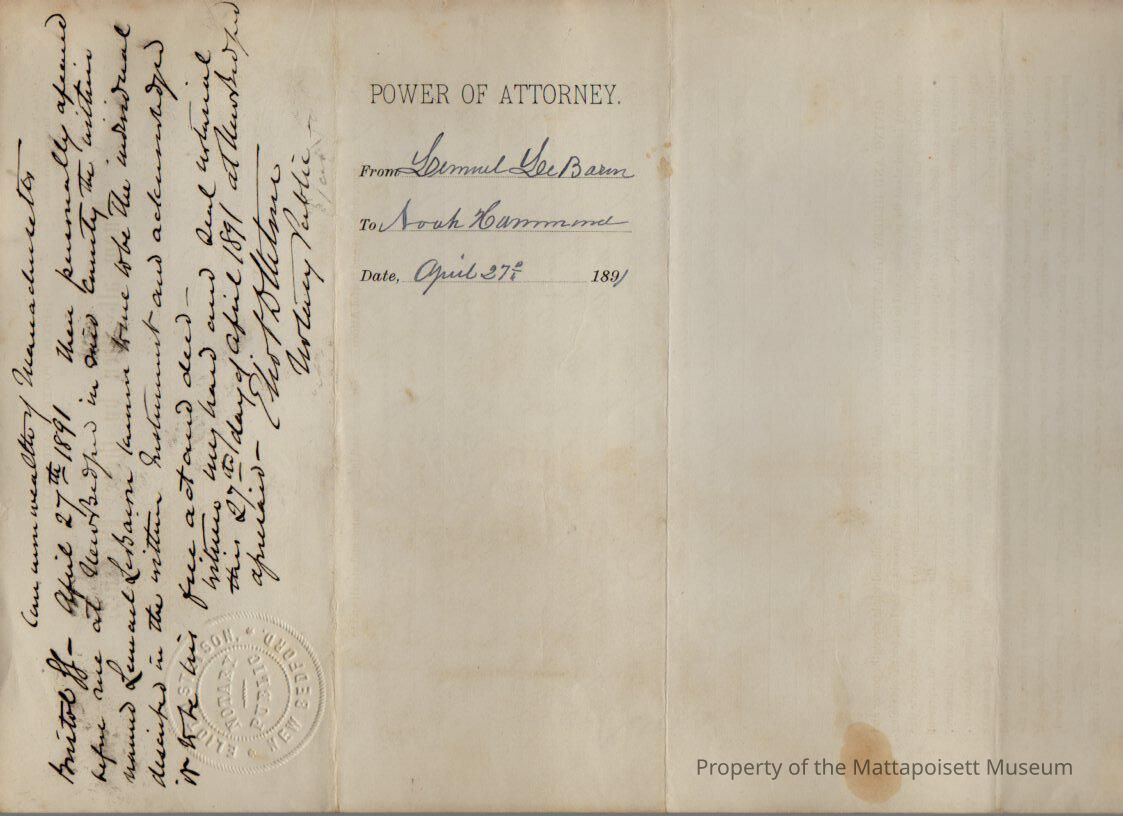 Commonwealth of Massachusetts
Bristol ss — April 27th 1891 then personally appeared
before me at New Bedford in said County the within
named Lemuel LeBaron known to me to be the individual
described in the within Instrument and acknowledged
it to be his free act and deed —
Witness my hand and Seal notarial
this 27th day of April 1891 at New Bedford
aforesaid —
Notary Public
NOTARY
PUBLIC
NEW BEDFORD.
POWER OF ATTORNEY.
From Lemuel LeBaron
To Noah Hammond
Date, April 27th 1891
Property of the Mattapoisett Museum